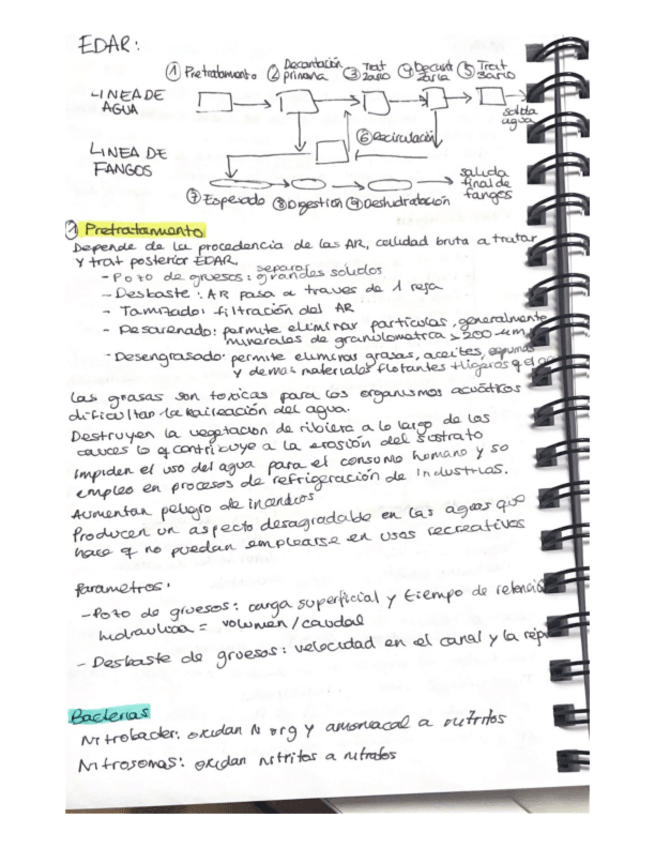 EDAR:
① Pretratamiento ② Decantación primaria ③ Trat 2ario ④ Decant 2aria ⑤ Trat 3ario
LINEA DE AGUA
salida agua
⑥ Recirculación
LINEA DE FANGOS
salida final de fangos
⑦ Espesado ⑧ Digestion ⑨ Deshidratación
① Pretratamiento
Depende de la procedencia de las AR, calidad bruta a tratar
y trat posterior EDAR.
- Pozo de gruesos: separar grandes solidos
- Desbaste: AR pasa a traves de 1 reja
- Tamizado: filtración del AR
- Desarenado: permite eliminar particulas, generalmente
minerales de granulometria > 200 µm
- Desengrasado: permite eliminar grasas, aceites, espumas
y demas materiales flotantes + ligeros q el
Las grasas son toxicas para los organismos acuáticos
dificultan la aireación del agua.
Destruyen la vegetacion de ribera a lo largo de los
cauces lo q contribuye a la erosión del sustrato
Impiden el uso del agua para el consumo humano y so
empleo en procesos de refrigeración de industrias.
Aumentan peligro de incendios
Producen un aspecto desagradable en las aguas que
hace q no puedan emplearse en usos recreativos
Parametros:
- Pozo de gruesos: carga superficial y tiempo de retenció
hidraulica = volumen / caudal
- Desbaste de gruesos: velocidad en el canal y la
Bacterias
Nitrobacter: oxidan N org y amoniacal a nitritos
Nitrosomas: oxidan nitritos a nitratos